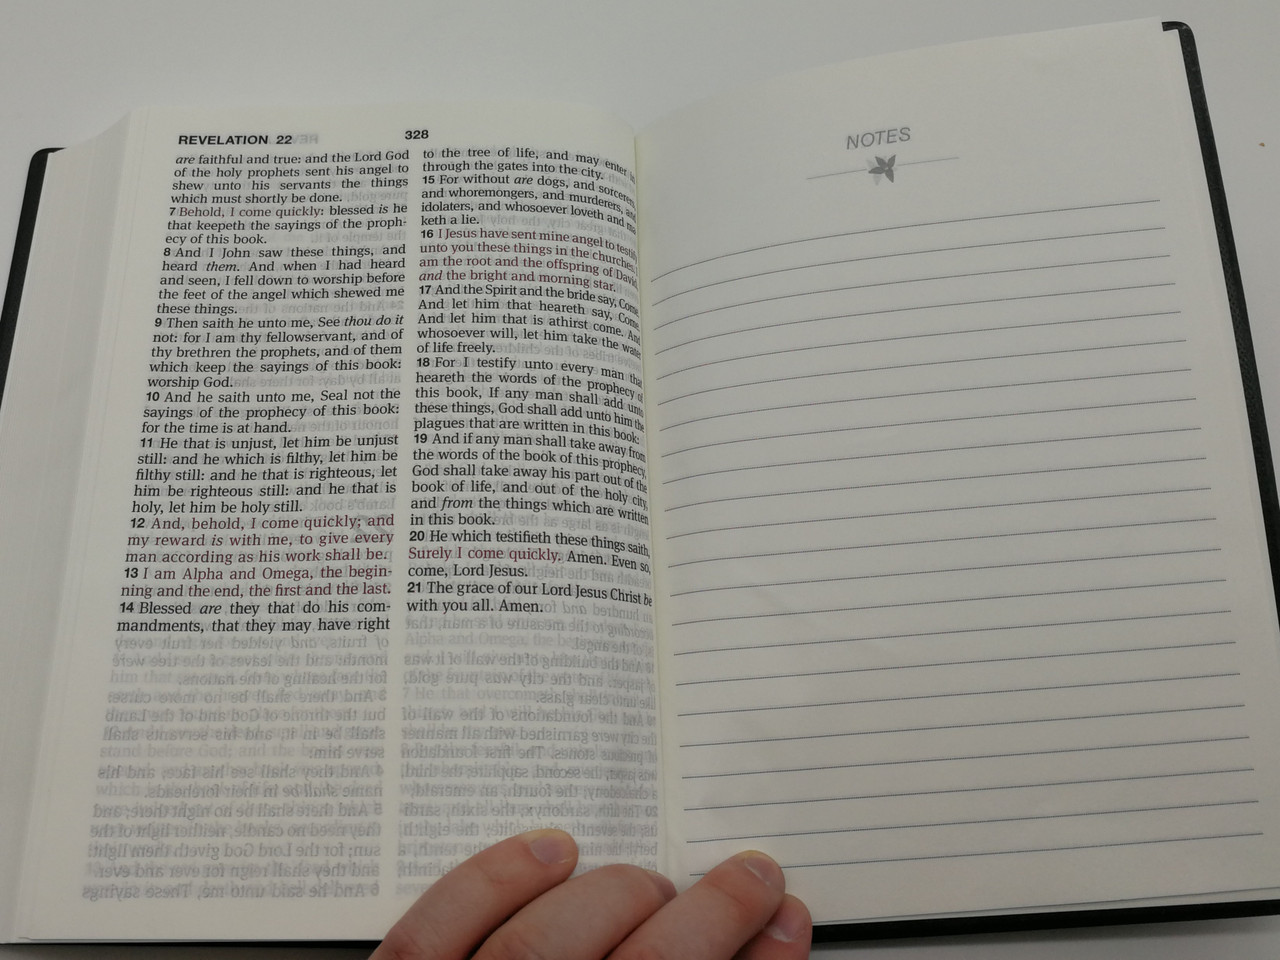 REVELATION 22
328
are faithful and true: and the Lord God
of the holy prophets sent his angel to
shew unto his servants the things
which must shortly be done.
7 Behold, I come quickly: blessed is he
that keepeth the sayings of the proph-
ecy of this book.
8 And I John saw these things, and
heard them. And when I had heard
and seen, I fell down to worship before
the feet of the angel which shewed me
these things.
9 Then saith he unto me, See thou do it
not: for I am thy fellowservant, and of
thy brethren the prophets, and of them
which keep the sayings of this book:
worship God.
10 And he saith unto me, Seal not the
sayings of the prophecy of this book:
for the time is at hand.
11 He that is unjust, let him be unjust
still: and he which is filthy, let him be
filthy still: and he that is righteous, let
him be righteous still: and he that is
holy, let him be holy still.
12 And, behold, I come quickly; and
my reward is with me, to give every
man according as his work shall be.
13 I am Alpha and Omega, the begin-
ning and the end, the first and the last.
14 Blessed are they that do his com-
mandments, that they may have right
to the tree of life, and may enter in
through the gates into the city.
15 For without are dogs, and sorcerers,
and whoremongers, and murderers, and
idolaters, and whosoever loveth and ma-
keth a lie.
16 I Jesus have sent mine angel to testify
unto you these things in the churches.
am the root and the offspring of David,
and the bright and morning star.
17 And the Spirit and the bride say, Come.
And let him that heareth say, Come.
And let him that is athirst come. And
whosoever will, let him take the water
of life freely.
18 For I testify unto every man that
heareth the words of the prophecy of
this book, If any man shall add unto
these things, God shall add unto him the
plagues that are written in this book:
19 And if any man shall take away from
the words of the book of this prophecy,
God shall take away his part out of the
book of life, and out of the holy city,
and from the things which are written
in this book.
20 He which testifieth these things saith,
Surely I come quickly. Amen. Even so,
come, Lord Jesus.
21 The grace of our Lord Jesus Christ be
with you all. Amen.
NOTES